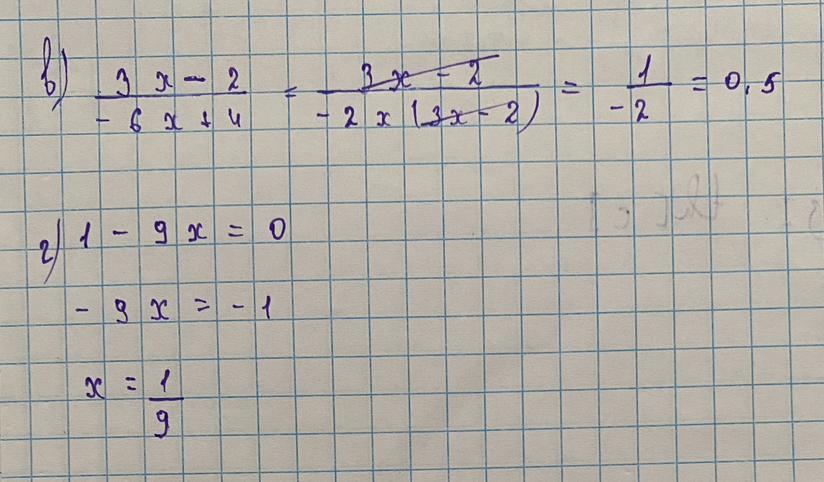 в) 3x - 2 / -6x + 4 = 3x - 2 / -2x(3x - 2) = 1 / -2 = 0,5
г) 1 - 9x = 0
-9x = -1
x = 1 / 9